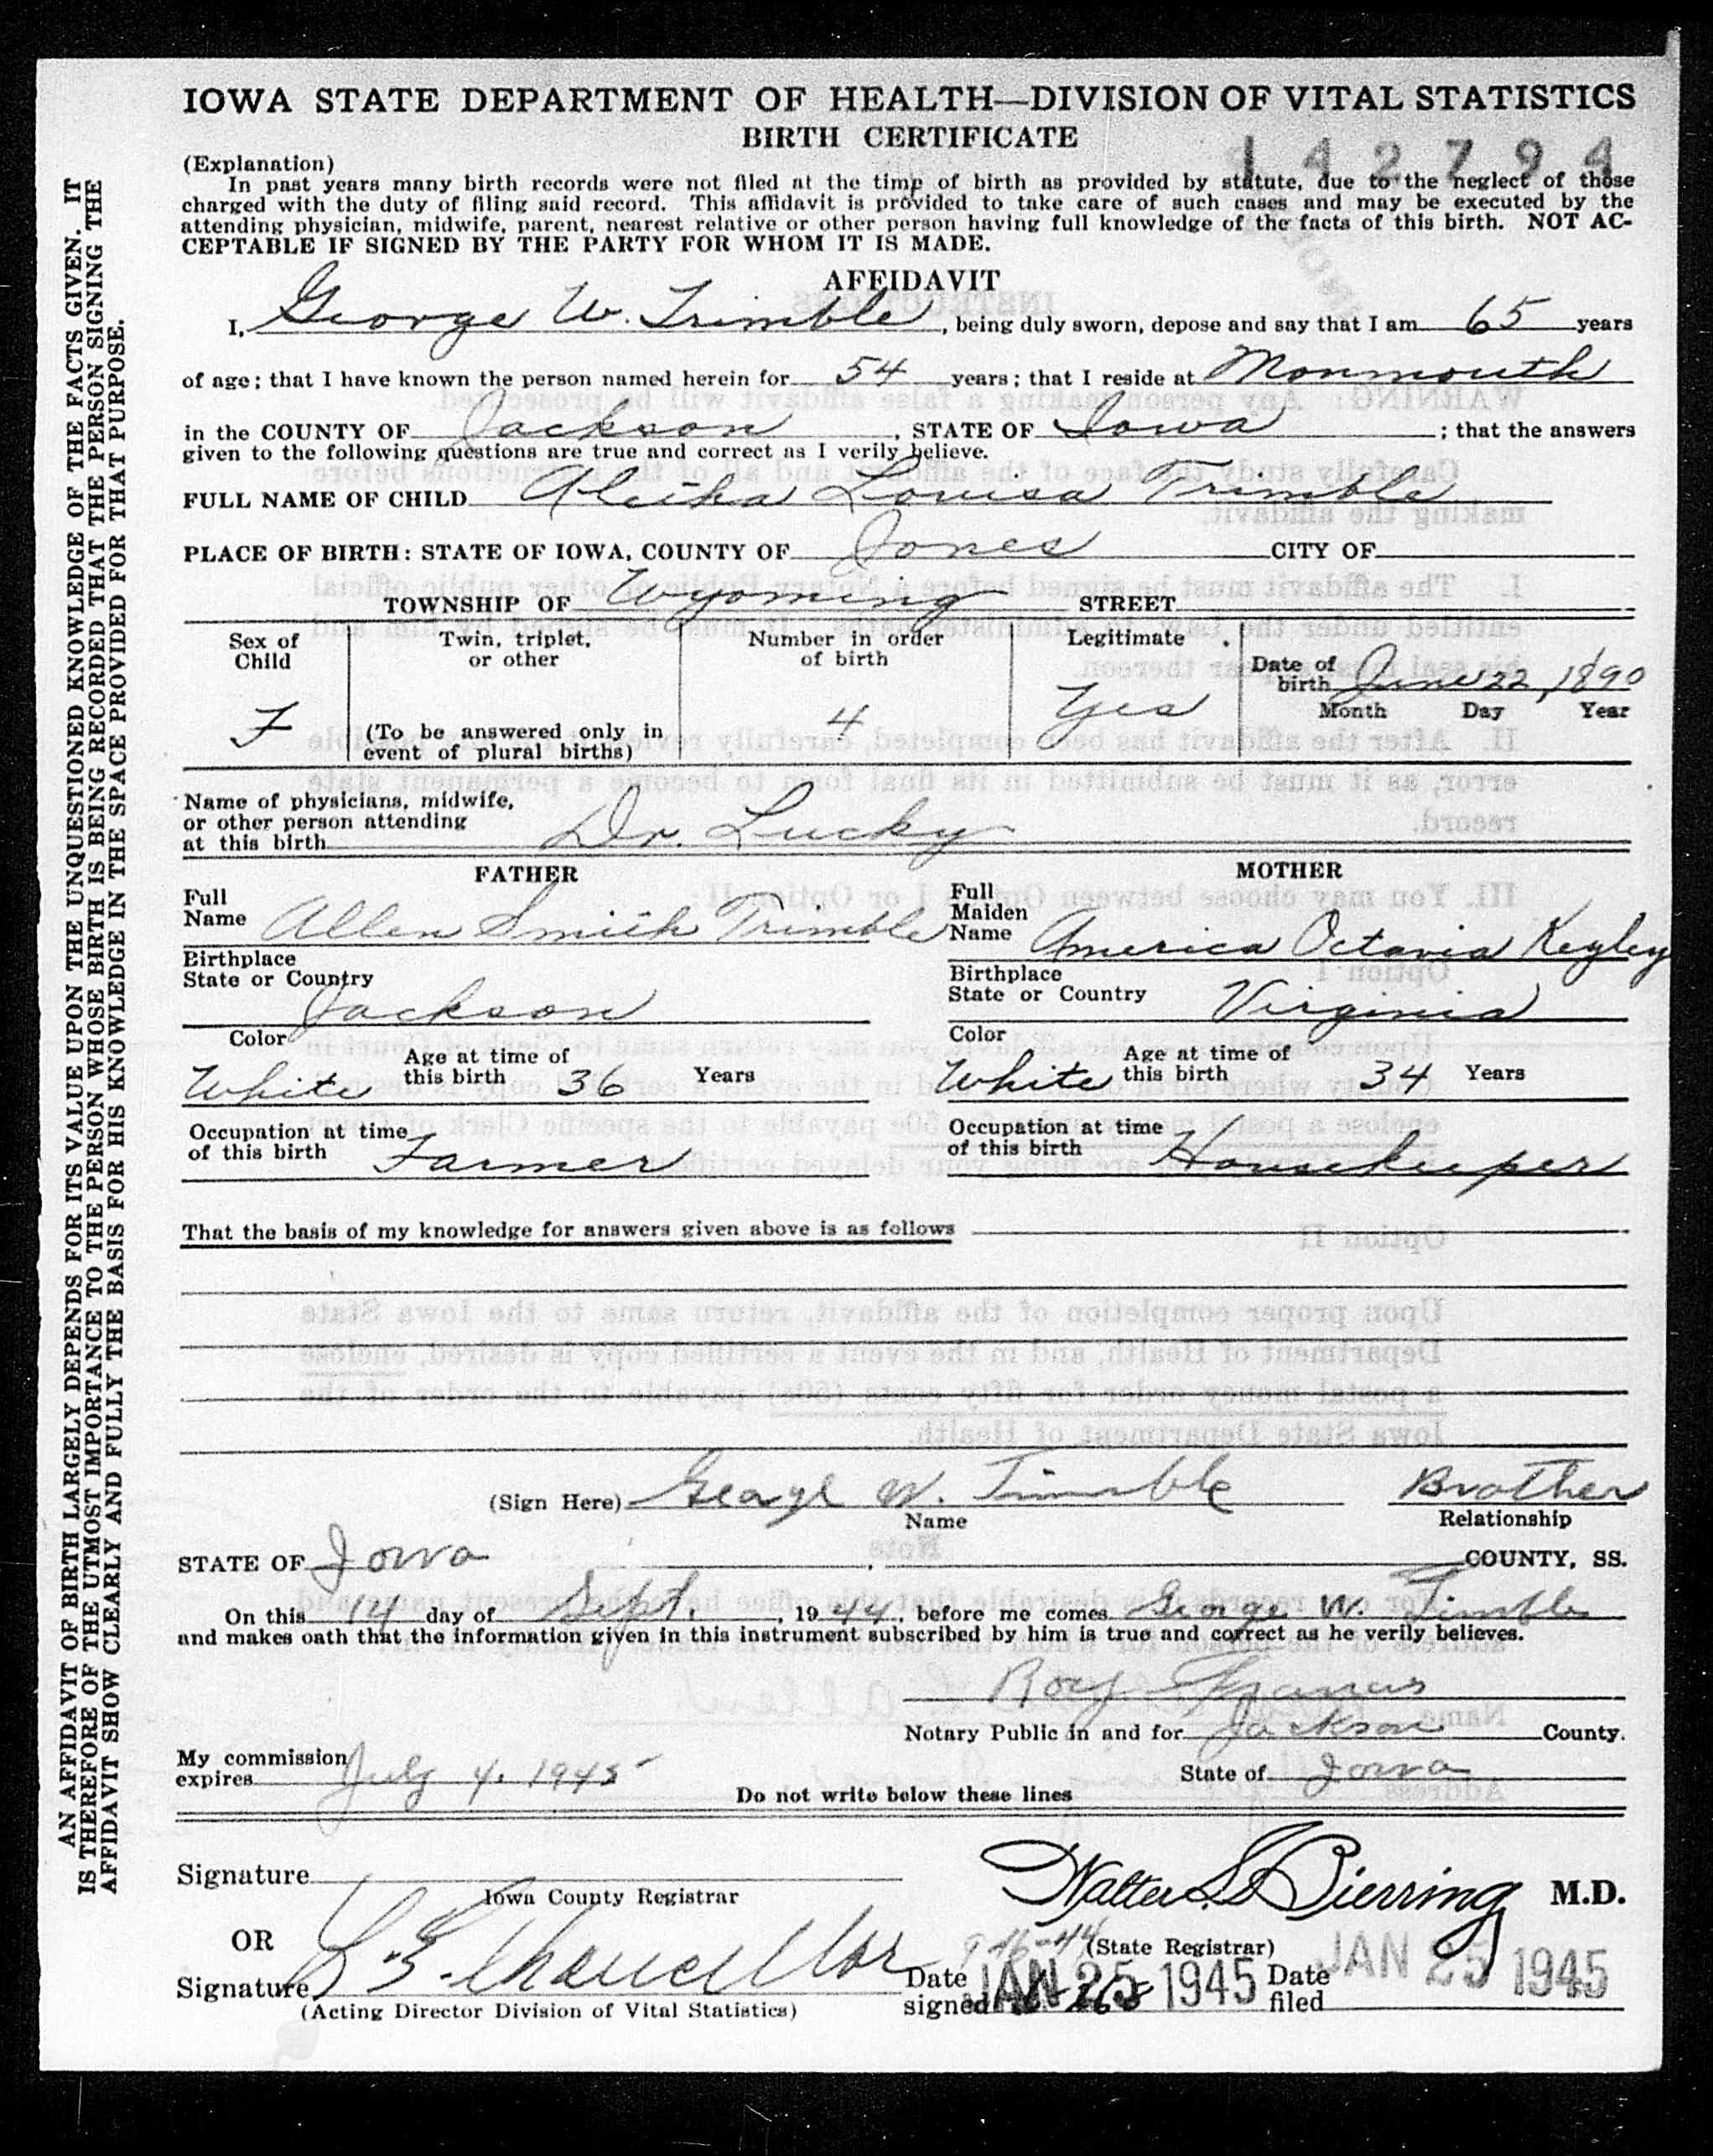 IOWA STATE DEPARTMENT OF HEALTH—DIVISION OF VITAL STATISTICS
BIRTH CERTIFICATE
142794
(Explanation)
In past years many birth records were not filed at the time of birth as provided by statute, due to the neglect of those
charged with the duty of filing said record. This affidavit is provided to take care of such cases and may be executed by the
attending physician, midwife, parent, nearest relative or other person having full knowledge of the facts of this birth. NOT AC-
CEPTABLE IF SIGNED BY THE PARTY FOR WHOM IT IS MADE.
AFFIDAVIT
I, George W. Trimble, being duly sworn, depose and say that I am 65 years
of age; that I have known the person named herein for 54 years; that I reside at Monmouth
in the COUNTY OF Jackson, STATE OF Iowa; that the answers
given to the following questions are true and correct as I verily believe.
FULL NAME OF CHILD Louisa Trimble
PLACE OF BIRTH: STATE OF IOWA, COUNTY OF Jones CITY OF
TOWNSHIP OF Wyoming STREET
Sex of Child F
Twin, triplet, or other (To be answered only in event of plural births)
Number in order of birth 4
Legitimate Yes
Date of birth June 22, 1890
Month Day Year
Name of physicians, midwife,
or other person attending
at this birth Dr. Lucky
FATHER
Full Name Allen Smith Trimble
Birthplace
State or Country Jackson
Color White Age at time of this birth 36 Years
Occupation at time of this birth Farmer
MOTHER
Full Maiden Name America Octavia Kegley
Birthplace
State or Country Virginia
Color White Age at time of this birth 34 Years
Occupation at time of this birth Housekeeper
That the basis of my knowledge for answers given above is as follows
(Sign Here) George W. Trimble Brother
Name Relationship
STATE OF Iowa, COUNTY, SS.
On this 14 day of Sept., 1944, before me comes George W. Trimble
and makes oath that the information given in this instrument subscribed by him is true and correct as he verily believes.
Roy
Notary Public in and for Jackson County.
My commission expires July 4. 1945 State of Iowa
Do not write below these lines
Signature
Iowa County Registrar
Walter L. Bierring M.D.
OR
9-16-44 (State Registrar)
Signature L. E. Chancellor Date signed JAN 25 1945 Date filed JAN 25 1945
(Acting Director Division of Vital Statistics)
AN AFFIDAVIT OF BIRTH LARGELY DEPENDS FOR ITS VALUE UPON THE UNQUESTIONED KNOWLEDGE OF THE FACTS GIVEN. IT
IS THEREFORE OF THE UTMOST IMPORTANCE TO THE PERSON WHOSE BIRTH IS BEING RECORDED THAT THE PERSON SIGNING THE
AFFIDAVIT SHOW CLEARLY AND FULLY THE BASIS FOR HIS KNOWLEDGE IN THE SPACE PROVIDED FOR THAT PURPOSE.